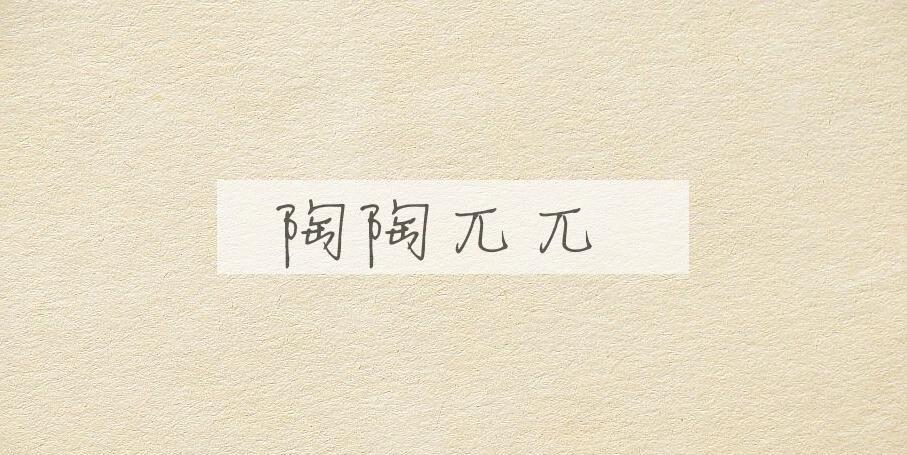 陶陶兀兀